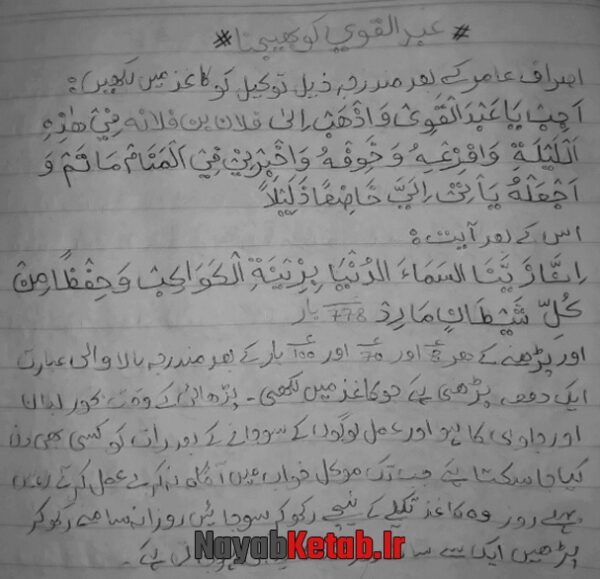 # عبد القوي کو بھیجنا #
اصراف عامر کے بعد مندرجہ ذیل توکیل کو کاغذ میں لکھیں):
اَجِبْ يَا عَبْدَ الْقَوِیْ وَاذْهَبْ اِلیٰ فلان بن فلانه فِيْ هٰذِهِ
الَّيْلَةِ وَافْزِعْهُ وَخَوِّفْهُ وَاخْبِرْنِيْ فِيْ الْمَنَامْ مَا تَمْ وَ
اَجْعَلْهُ يَأتِيْ اِلَيَّ خَاضِعًا ذَلِيْلاً
اس کے بعد آیت:
اِنَّا زَيَّنَّا السَمَاءَ الدُنْيَا بِزِيْنَةِ الْكَوَاكِبْ وَحِفْظًا مِنْ
كُلِّ شَيْطَانٍ مَارِدْ 778 بار
اور پڑھنے کے ھر 8 اور 70 اور 100 بار کے بعد مندرجہ بالا والی عبارت
ایک دفعہ پڑھنی ہے جو کاغذ میں لکھی۔ پڑھائی کے وقت بخور لبان
اور جاوی کا ہو اور عمل لوگوں کے سو جانے کے بعد رات کو کسی بھی دن
کیا جا سکتا ہے جب تک موکل خواب میں آگاہ نہ کرے عمل کرتے رہیں
پہلے روز وہ کاغذ تکیے کے نیچے رکھ کر سو جائیں روزانہ سامنے رکھ کر
پڑھیں ایک سے سات ہے۔
NayabKetab.Ir